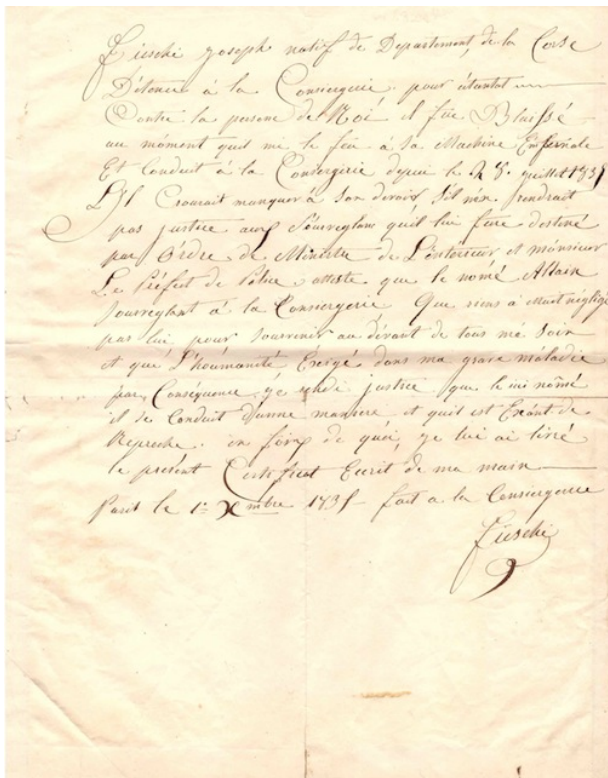 Fieschi Joseph natif de Departement, de la Corse
Détenue à la Consiergerie pour atantat
Contre la persone de Roi il fue Blaissé
au môment quil mi le feu à sa Machine Enfernale
Et Conduit à la Consiergirie depui le 28 juillet
il Croirait manquer à Son devoir S'il nén rendrait
pas justice aux Sourveglans qu'il lui fure destiné
par Ordre de Ministre de L'intérieur et mónsieur
Le Préfect de Police atteste que le nomé Allain
Sourveglant à la Consiergerie Que riens a négligé
pas lui pour Souvrenir au dévant de tous mé Soin
et que L'houmanité Exergé dans ma grave maladie
par, Conséquence je rendi justice que le nômé
il se Conduit d'unne maniere et quil est Exént de
Reproche. en foix de quoi, je lui ai livré
le présent Certificat Ecrit de ma main
Paris le 1er Xmbre fait a la Consiergerie
Fieschi